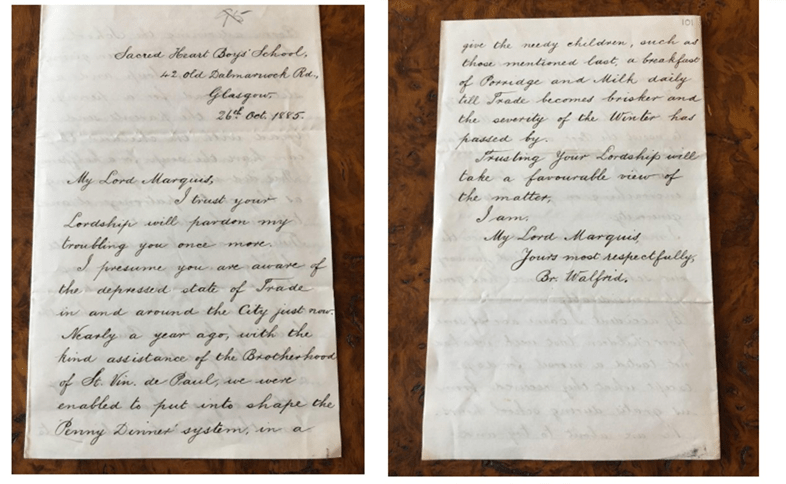 Sacred Heart Boys' School,
42 Old Dalmarnock Rd.,
Glasgow.
26th Oct. 1885.
My Lord Marquis,
I trust your
Lordship will pardon my
troubling you once more.
I presume you are aware of
the depressed state of Trade
in and around the City just now.
Nearly a year ago, with the
kind assistance of the Brotherhood
of St. Vin. de Paul, we were
enabled to put into shape the
Penny Dinner system, in a
101
give the needy children, such as
those mentioned last, a breakfast
of Porridge and Milk daily
till Trade becomes brisker and
the severity of the Winter has
passed by.
Trusting Your Lordship will
take a favourable view of
the matter,
I am.
My Lord Marquis,
Yours most respectfully,
Br. Walfrid.